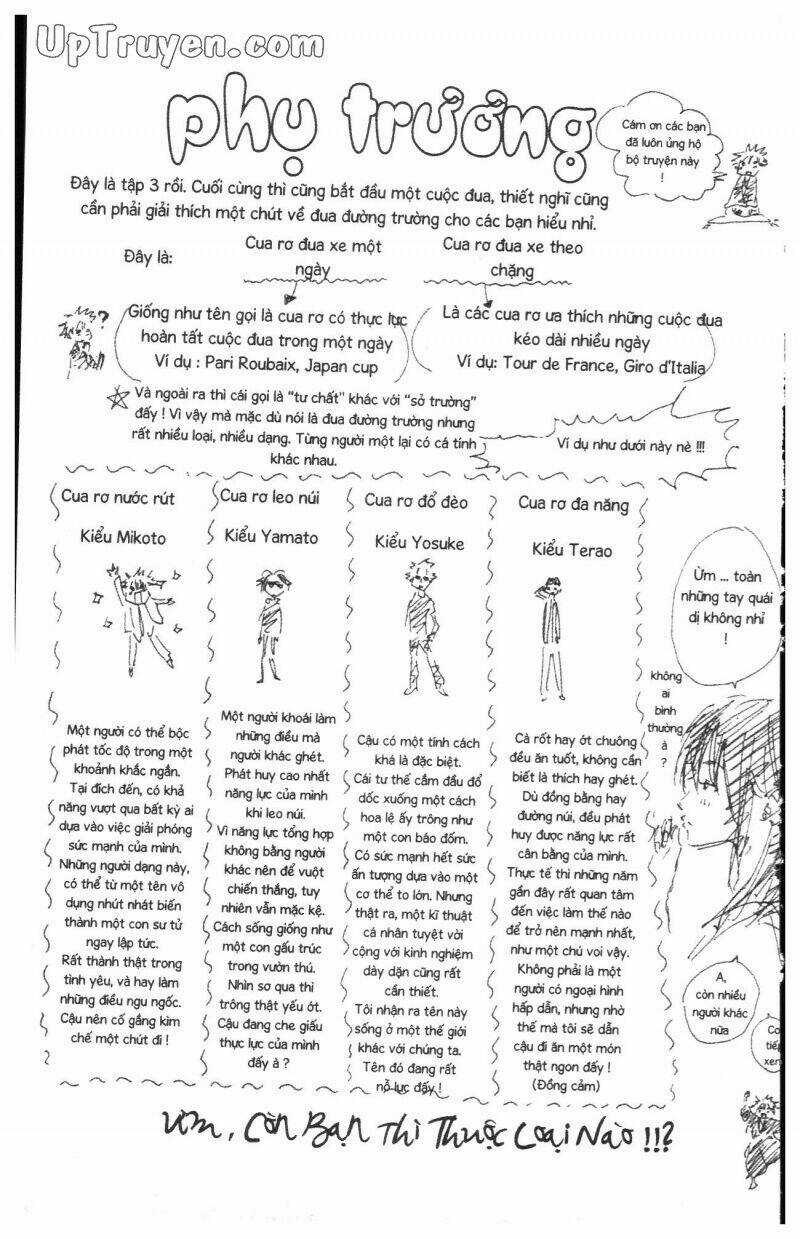 UpTruyen.com
phụ trương
Cám ơn các bạn
đã luôn ủng hộ
bộ truyện này
!
Đây là tập 3 rồi. Cuối cùng thì cũng bắt đầu một cuộc đua, thiết nghĩ cũng
cần phải giải thích một chút về đua đường trường cho các bạn hiểu nhỉ.
Đây là:
Cua rơ đua xe một
ngày
Cua rơ đua xe theo
chặng
Giống như tên gọi là cua rơ có thực lực
hoàn tất cuộc đua trong một ngày
Ví dụ : Pari Roubaix, Japan cup
Là các cua rơ ưa thích những cuộc đua
kéo dài nhiều ngày
Ví dụ: Tour de France, Giro d'Italia
Và ngoài ra thì cái gọi là "tư chất" khác với "sở trường"
đấy ! Vì vậy mà mặc dù nói là đua đường trường nhưng
rất nhiều loại, nhiều dạng. Từng người một lại có cá tính
khác nhau.
Ví dụ như dưới này nè !!!
Cua rơ nước rút
Kiểu Mikoto
Một người có thể bộc
phát tốc độ trong một
khoảnh khắc ngắn.
Tại đích đến, có khả
năng vượt qua bất kỳ ai
dựa vào việc giải phóng
sức mạnh của mình.
Những người dạng này,
có thể từ một tên vô
dụng nhút nhát biến
thành một con sư tử
ngay lập tức.
Rất thành thật trong
tình yêu, và hay làm
những điều ngu ngốc.
Cậu nên cố gắng kìm
chế một chút đi !
Cua rơ leo núi
Kiểu Yamato
Một người khoái làm
những điều mà
người khác ghét.
Phát huy cao nhất
năng lực của mình
khi leo núi.
Vì năng lực tổng hợp
không bằng người
khác nên để vuột
chiến thắng, tuy
nhiên vẫn mặc kệ.
Cách sống giống như
một con gấu trúc
trong vườn thú.
Nhìn sơ qua thì
trông thật yếu ớt.
Cậu đang che giấu
thực lực của mình
đấy à ?
Cua rơ đổ đèo
Kiểu Yosuke
Cậu có một tính cách
khá là đặc biệt.
Cái tư thế cắm đầu đổ
dốc xuống một cách
hoa lệ ấy trông như
một con báo đốm.
Có sức mạnh hết sức
ấn tượng dựa vào một
cơ thể to lớn. Nhưng
thật ra, một kĩ thuật
cá nhân tuyệt vời
cộng với kinh nghiệm
dày dặn cũng rất
cần thiết.
Tôi nhận ra tên này
sống ở một thế giới
khác với chúng ta.
Tên đó đang rất
nỗ lực đấy !
Cua rơ đa năng
Kiểu Terao
Cà rốt hay ớt chuông
đều ăn tuốt, không cần
biết là thích hay ghét.
Dù đồng bằng hay
đường núi, đều phát
huy được năng lực rất
cân bằng của mình.
Thực tế thì những năm
gần đây rất quan tâm
đến việc làm thế nào
để trở nên mạnh nhất,
như một chú voi vậy.
Không phải là một
người có ngoại hình
hấp dẫn, nhưng nhờ
thế mà tôi sẽ dẫn
cậu đi ăn một món
thật ngon đấy !
(Đồng cảm)
Ừm ... toàn
những tay quái
dị không nhỉ
!
không
ai
bình
thường
à
?
A,
còn nhiều
người khác
nữa
Co
tiế
xem
Ừm, Còn Bạn Thì Thuộc Loại Nào !!?